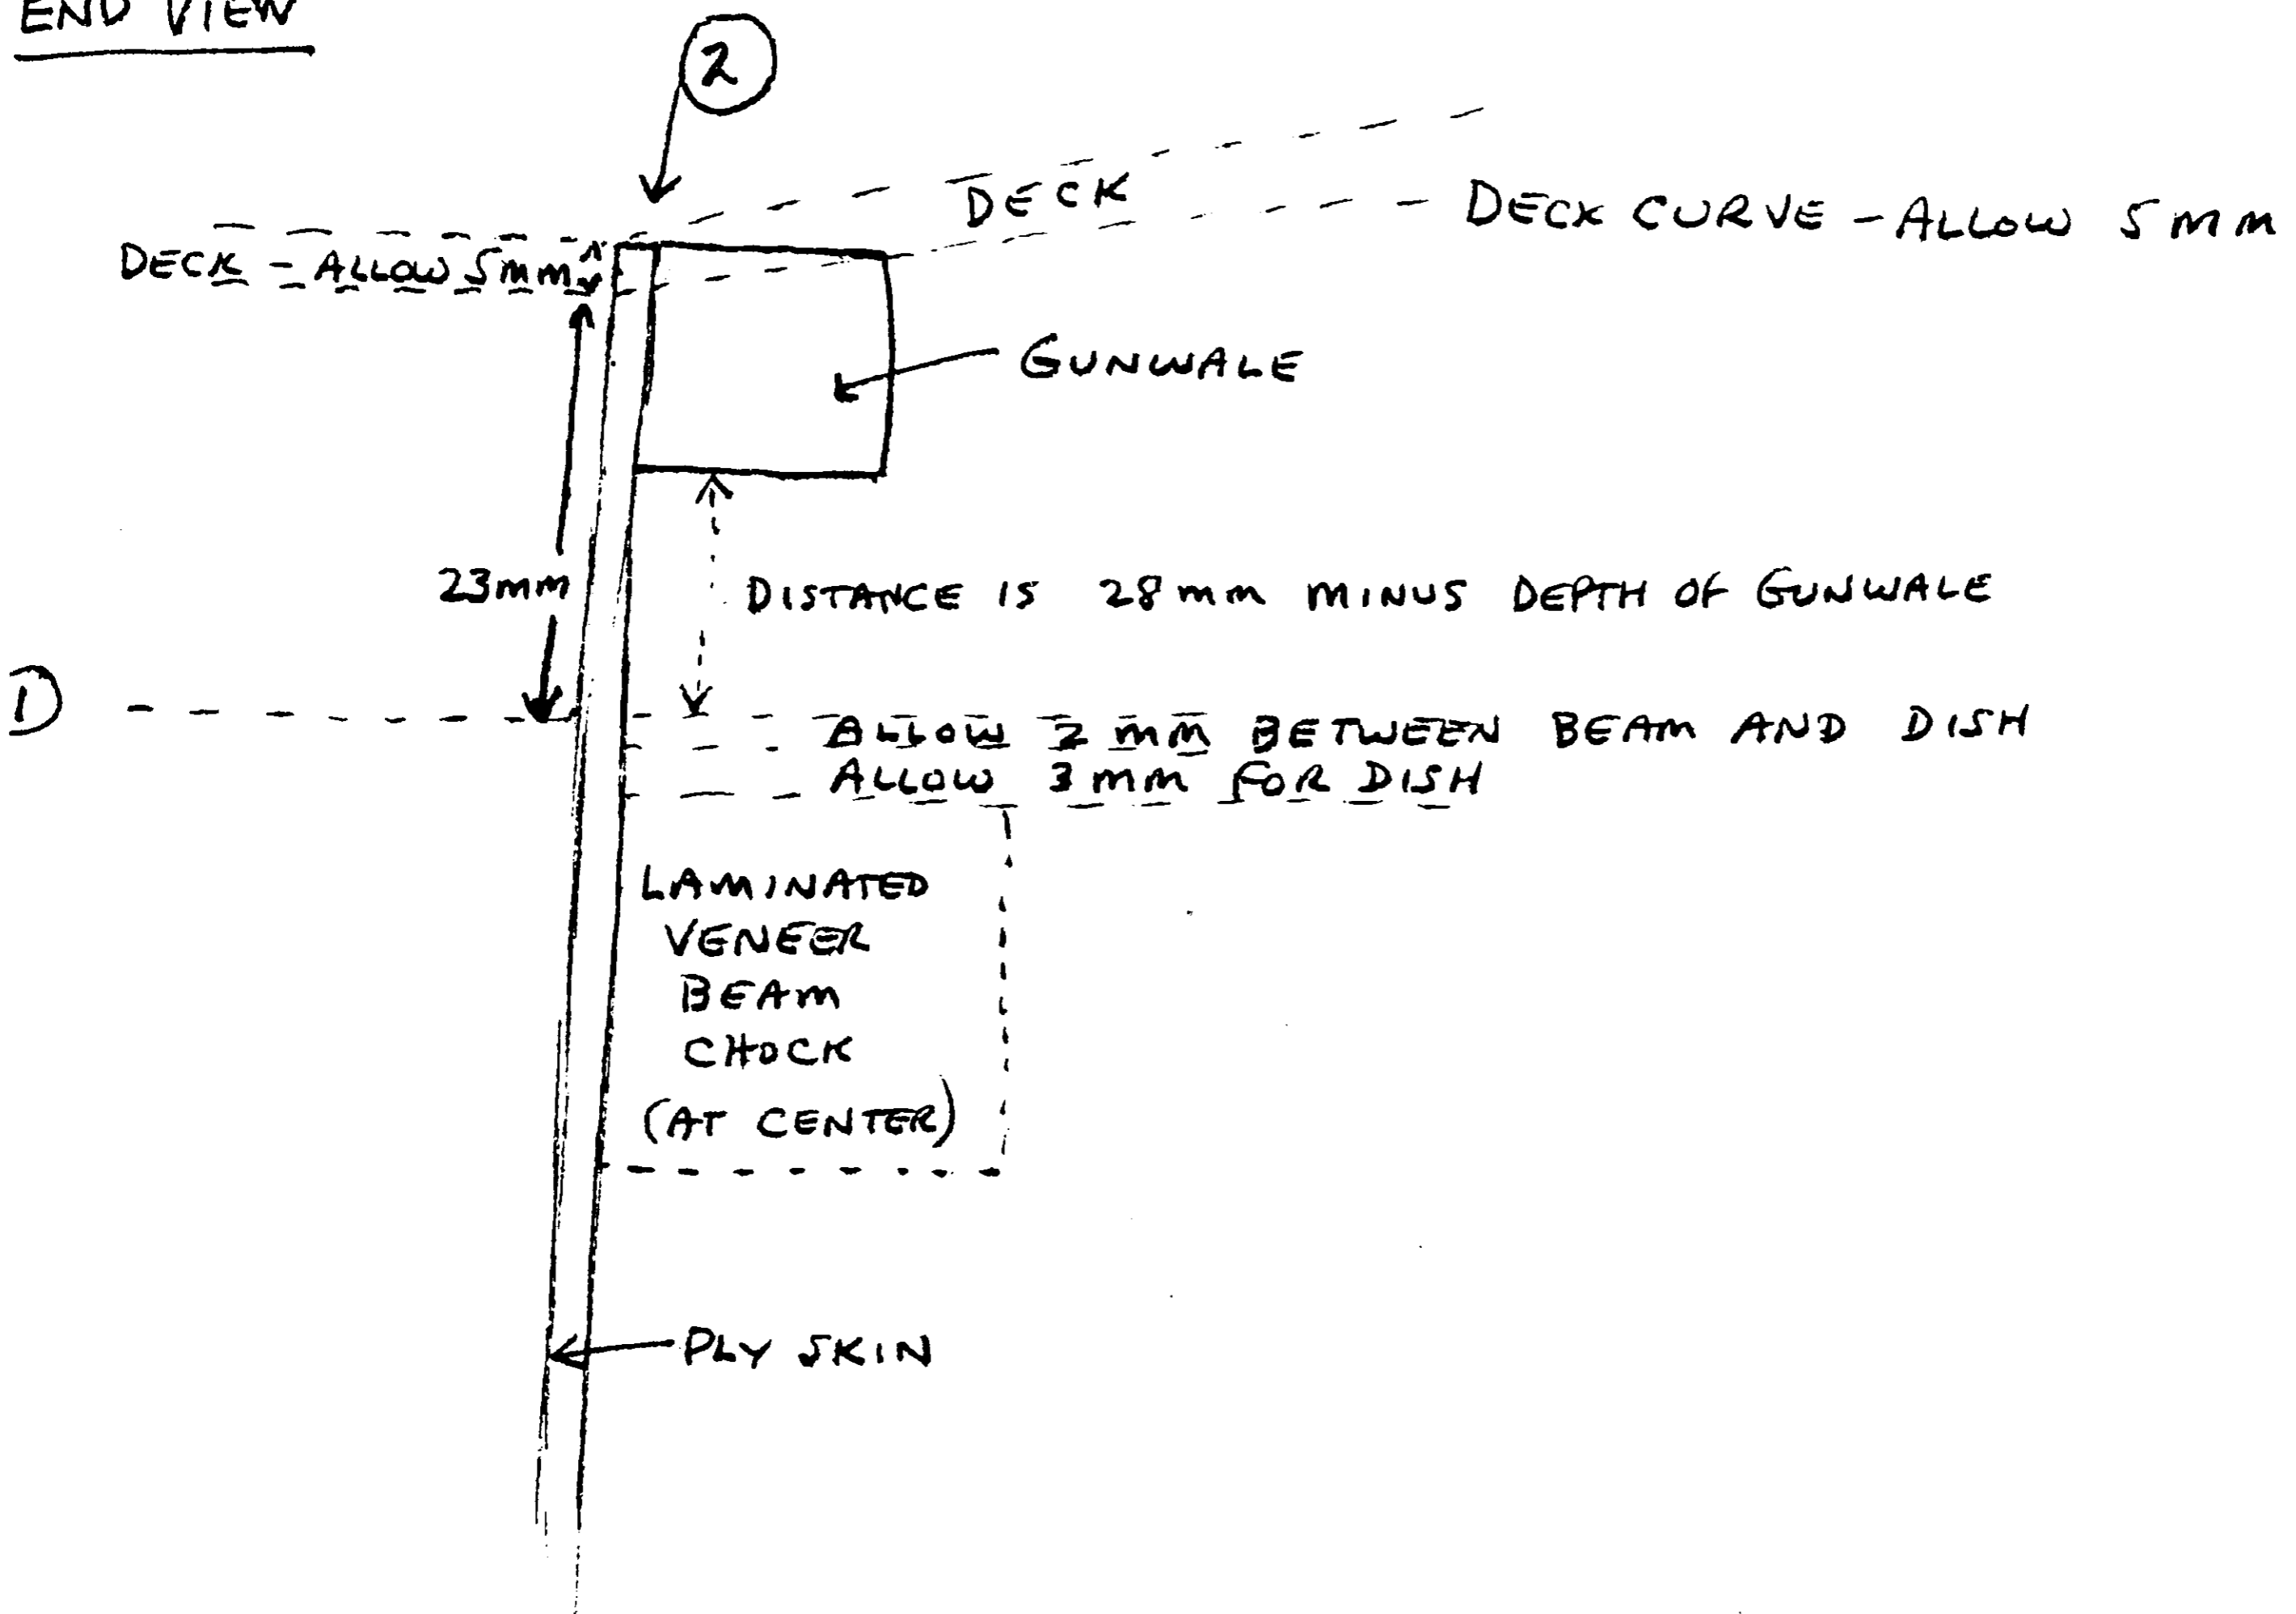 END VIEW
2
DECK
DECK CURVE - ALLOW 5MM
DECK - ALLOW 5mm
GUNWALE
23mm
DISTANCE IS 28mm MINUS DEPTH OF GUNWALE
D
ALLOW 2 mm BETWEEN BEAM AND DISH
ALLOW 3 mm FOR DISH
LAMINATED
VENEER
BEAM
CHOCK
(AT CENTER)
PLY SKIN